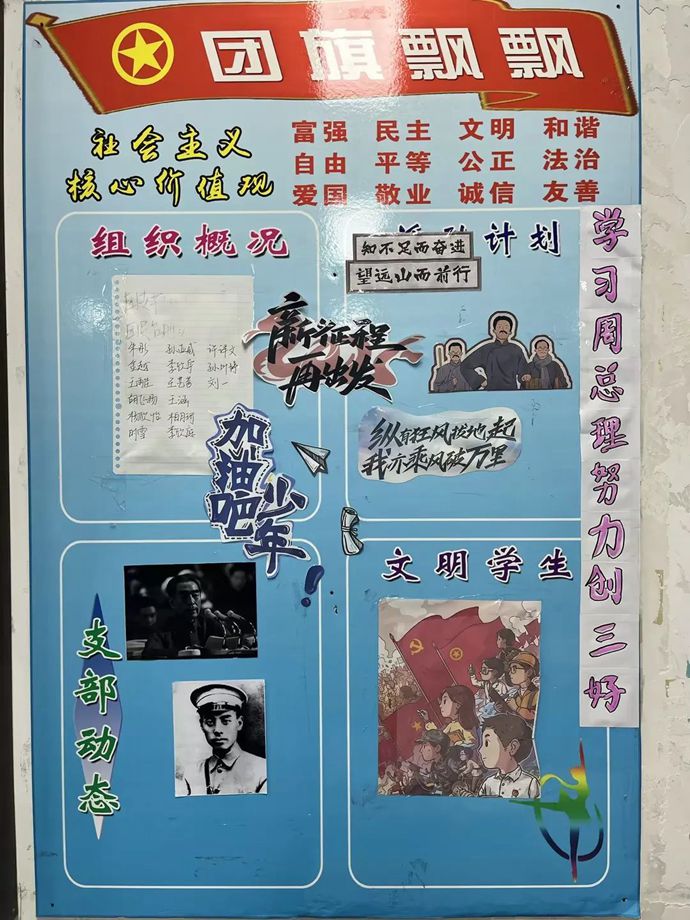 团旗飘飘
社会主义
核心价值观
富强 民主 文明 和谐
自由 平等 公正 法治
爱国 敬业 诚信 友善
组织概况
计划
知不足而奋进
望远山而前行
新征程
再出发
纵有狂风拔地起
我亦乘风破万里
加油吧
少年!
学习周总理努力创三好
支部动态
文明学生